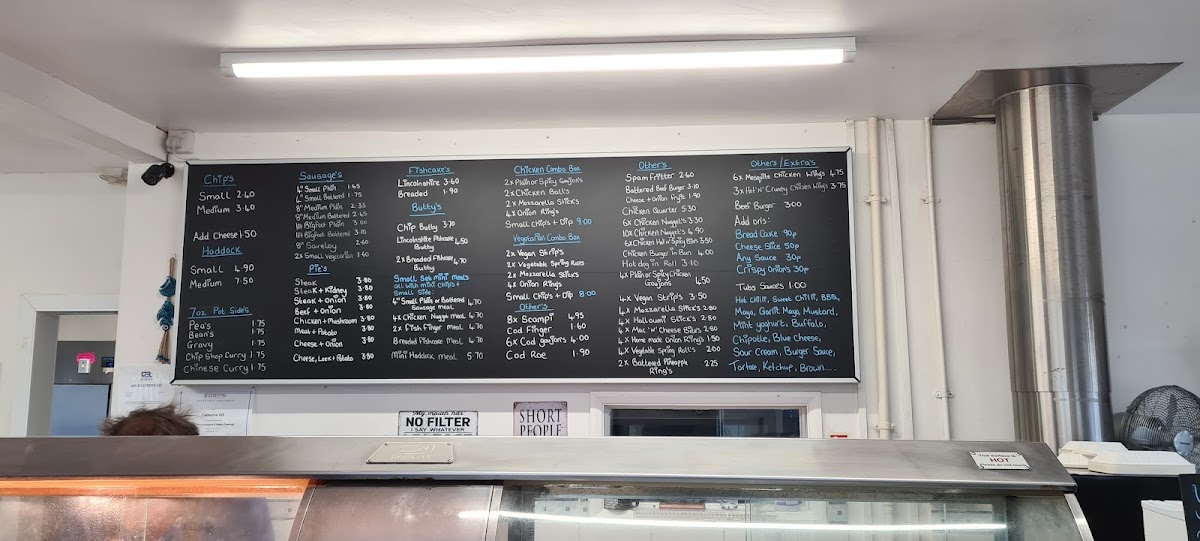 Chip's
Small 2.40
Medium 3.40
Add Cheese 1.50
Haddock
Small 4.90
Medium 7.50
7oz Pot Side's
Pea's 1.75
Bean's 1.75
Gravy 1.75
Chip Shop Curry 1.75
Chinese Curry 1.75
Sausage's
4" Small Plain 1.65
4" Small Battered 1.75
8" Medium Plain 2.35
8" Medium Battered 2.45
Bigfoot Plain 3.00
Bigfoot Battered 3.10
8" Saveloy 2.60
2x Small Vegetarian 1.60
Pie's
Steak 3.80
Steak + Kidney 3.80
Steak + Onion 3.80
Beef + Onion 3.80
Chicken + Mushroom 3.80
Meat + Potato 3.80
Cheese + Onion 3.80
Cheese, Leek + Potato 3.80
Fishcake's
Lincolnshire 3.60
Breaded 1.90
Butty's
Chip Butty 3.70
Lincolnshire Fishcake 4.50
Butty
2x Breaded Fishcake 4.70
Butty
Small Set mini meals
all with mini chips +
Small Side:
4" Small Plain or Battered 4.70
Sausage meal
4x Chicken Nugget meal 4.70
2x Fish Finger meal 4.70
Breaded Fishcake meal 4.70
Mini Haddock meal 5.70
Chicken Combo Box
2x Plain or Spicy Goujons
2x Chicken Ball's
2x Mozzarella Sticks
4x Onion Ring's
Small Chips + Dip 9.00
Vegetarian Combo Box
2x Vegan Strip's
2x Vegetable Spring Rolls
2x Mozzarella Sticks
4x Onion Ring's
Small Chips + Dip 8.00
Other's
8x Scampi 4.95
Cod Finger 1.60
6x Cod goujons 4.00
Cod Roe 1.90
Other's
Spam Fritter 2.60
Battered Beef Burger 3.10
Cheese + Onion Fry's 1.90
Chicken Quarter 5.30
6x Chicken Nugget's 3.30
10x Chicken Nugget's 4.90
6x Chicken Hot'n'Spicy Bites 3.50
Chicken Burger in Bun 4.00
Hot dog in Roll 3.10
4x Plain or Spicy Chicken 4.50
Goujons
4x Vegan Strip's 3.50
4x Mozzarella Stick's 2.80
4x Halloumi Stick's 2.80
4x Mac'n'Cheese Bites 2.80
4x Home made Onion Ring's 1.50
4x Vegetable Spring Roll's 2.00
2x Battered Pineapple 2.25
Ring's
Others/Extra's
6x Mesquite Chicken Wing's 4.75
3x Hot'N'Crunchy Chicken Wing's 3.75
Beef Burger 3.00
Add on's:
Bread Cake 90p
Cheese Slice 50p
Any Sauce 30p
Crispy Onions 30p
Tubs Sauces 1.00
Hot Chilli, Sweet Chilli, BBQ,
Mayo, Garlic Mayo, Mustard,
Mint yoghurt, Buffalo,
Chipotle, Blue Cheese,
Sour Cream, Burger Sauce,
Tartare, Ketchup, Brown....
My mouth has
NO FILTER
I SAY WHATEVER
SHORT
PEOPLE
HOPKINS
This surface is
HOT
Please do not touch